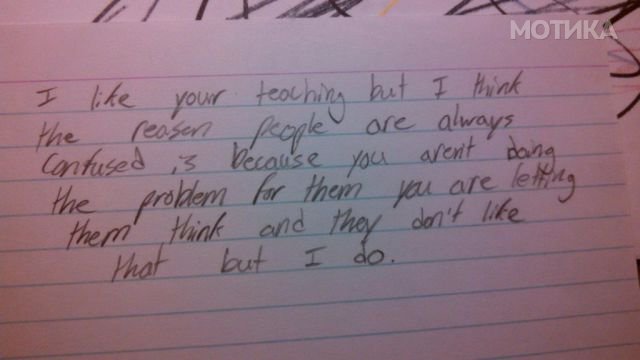 МОТИКА
I like your teaching but I think
the reason people are always
confused is because you arent doing
the problem for them you are letting
them think and they don't like
that but I do.